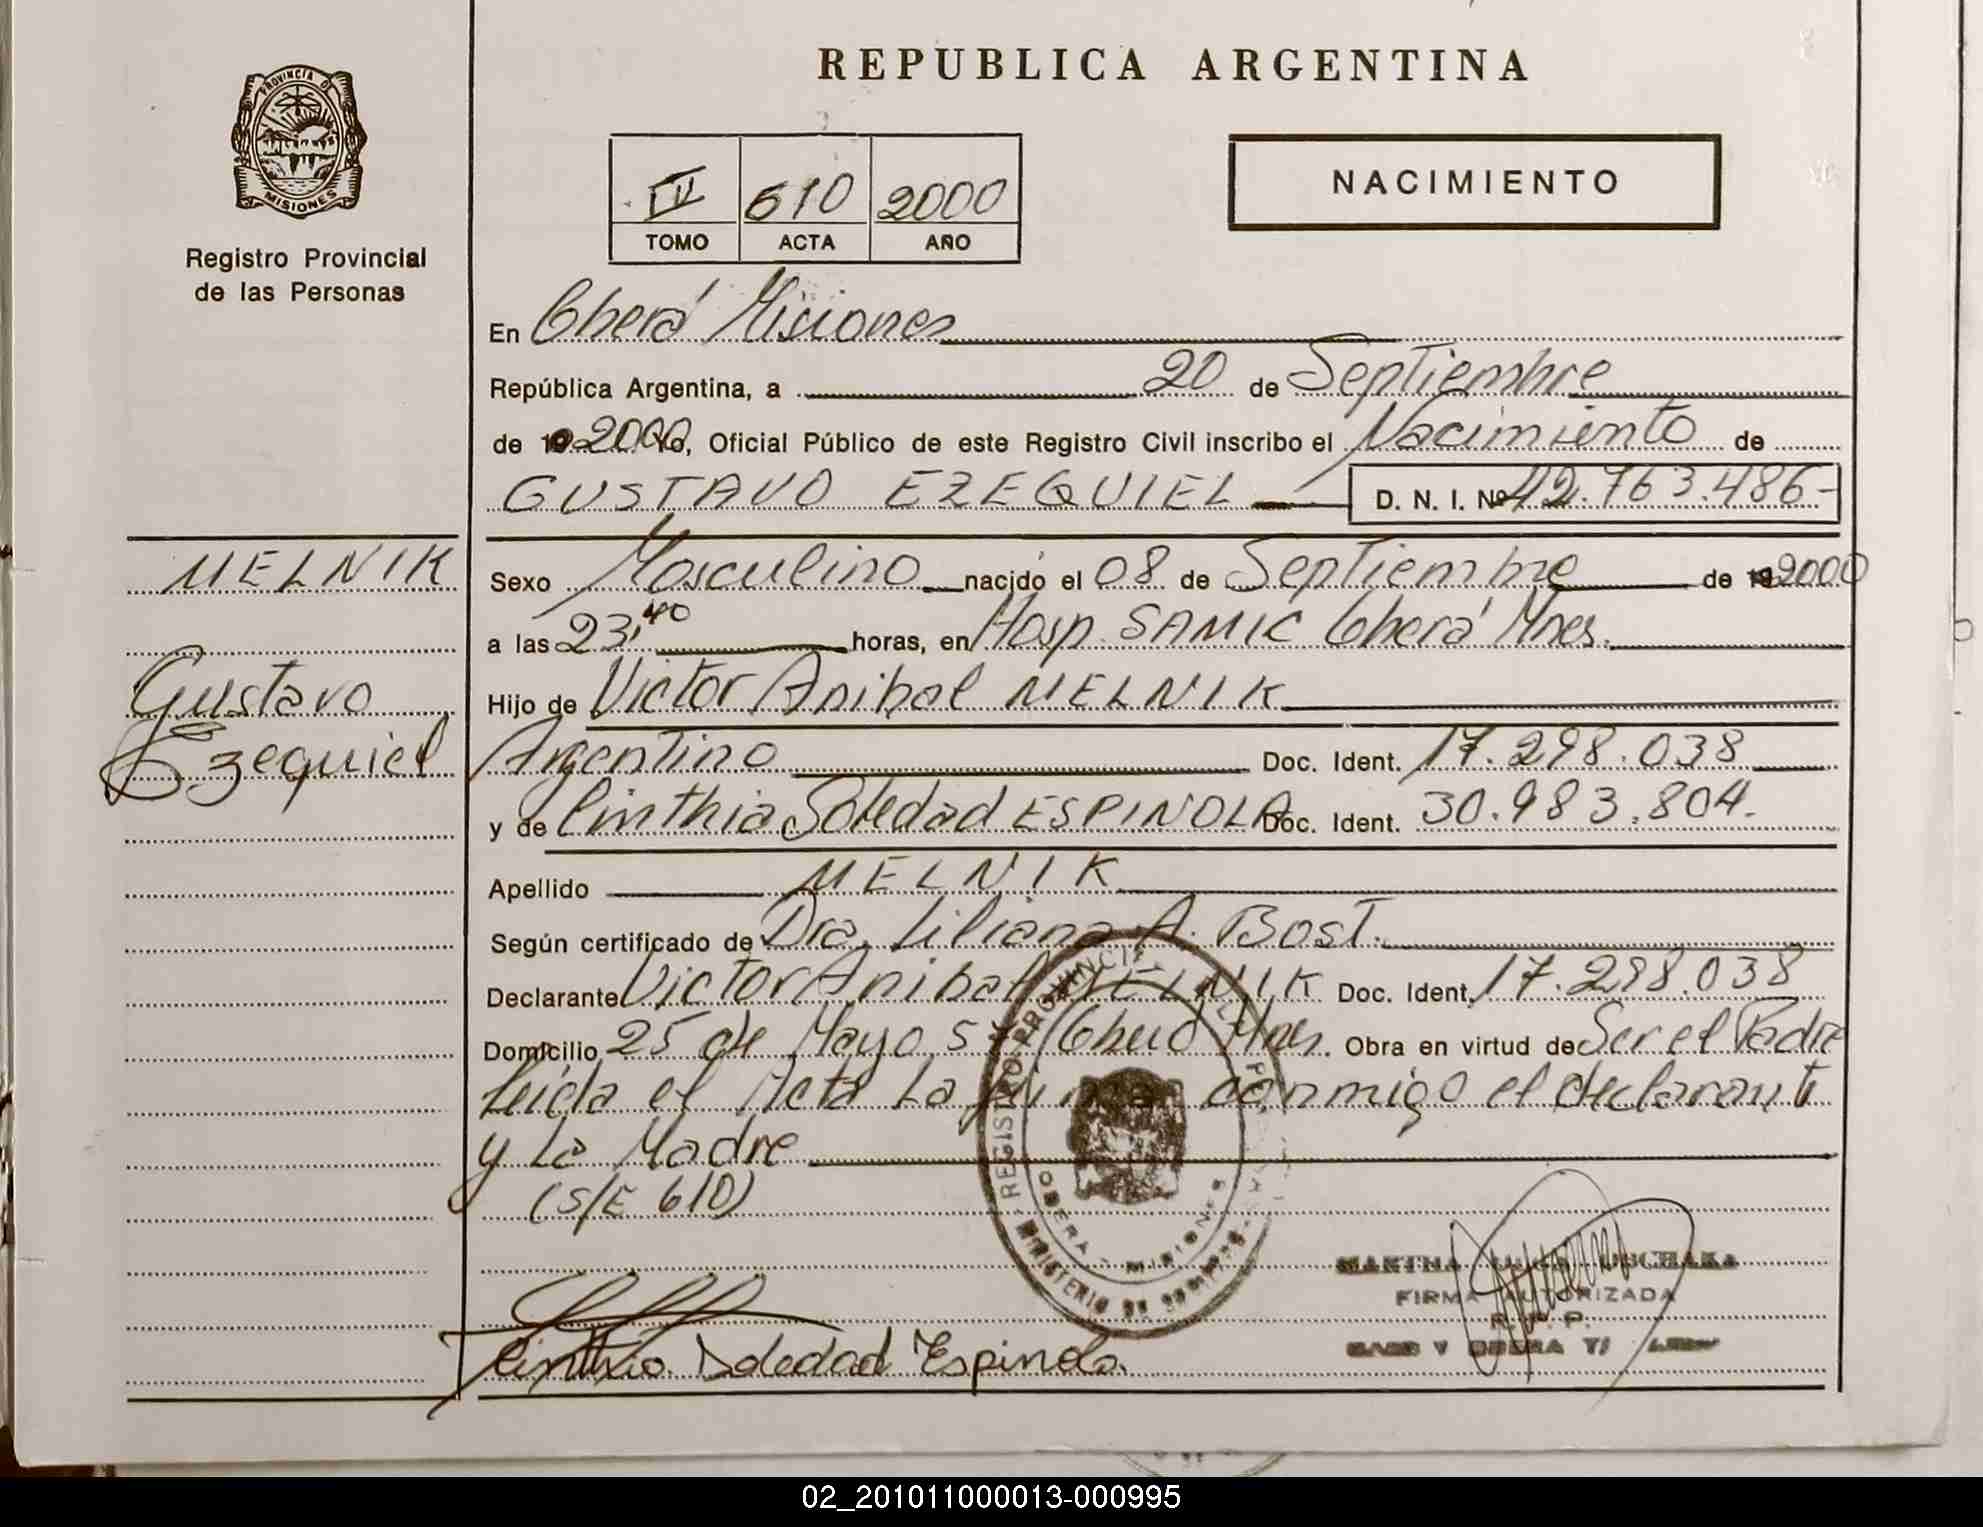 REPUBLICA ARGENTINA
PROVINCIA DE
MISIONES
Registro Provincial
de las Personas
IV 610 2000
TOMO ACTA AÑO
NACIMIENTO
En Oberá Misiones
República Argentina, a 20 de Septiembre
de 2000 Yo, Oficial Público de este Registro Civil inscribo el Nacimiento de
GUSTAVO EZEQUIEL D. N. I. Nº 42.763.486-
MELNIK
Gustavo
Ezequiel
Sexo Masculino nacido el 08 de Septiembre de 2000
a las 23,40 horas, en Hosp. SAMIC Oberá Mnes.
Hijo de Victor Anibal MELNIK
Argentino Doc. Ident. 17.298.038
y de Cinthia Soledad ESPINOLA Doc. Ident. 30.983.804.
Apellido MELNIK
Según certificado de Dra. Liliana A. Bost.
Declarante Victor Anibal MELNIK Doc. Ident. 17.298.038
Domicilio 25 de Mayo Oberá Mnes. Obra en virtud de Ser el Padre
Leida el Acta La firman conmigo el declarante
y La Madre
(S/E 610)
REGISTRO PROVINCIAL DE LAS PERSONAS
OBERA - MISIONES
MINISTERIO DE GOBIERNO
MARTHA
FIRMA AUTORIZADA
R. P. P.
OBERA
Cinthia Soledad Espinola.
02_201011000013-000995